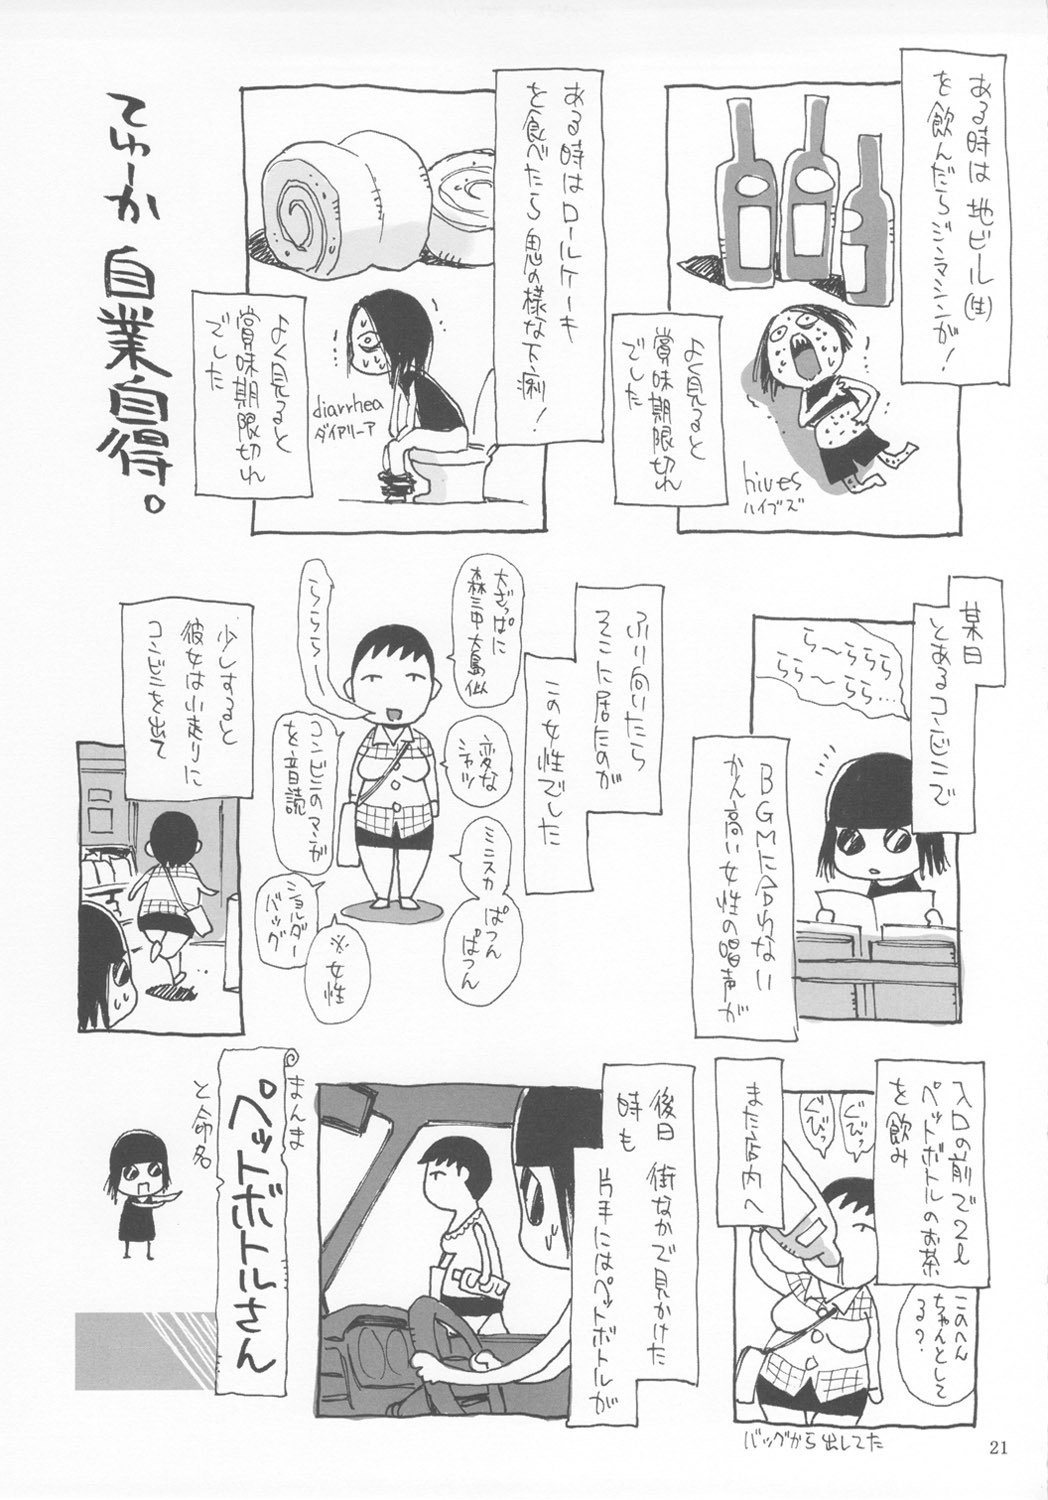 ある時は 地ビール(生)
を飲んだらジンマシンが!
よく見ると
賞味期限切れ
でした
hives
ハイブズ
ある時はロールケーキ
を食べたら 鬼の様な下痢!
diarrhea
ダイアリーア
よく見ると
賞味期限切れ
でした
てゆーか 自業自得。
某日
とあるコンビニで
ら〜らららら
らら〜らら…
BGMに合わない
かん高い女性の唱声が
ふり向いたら
そこに居たのが
この女性でした
大ざっぱに
森三中大島似
ららら〜
変な
シャツ
コンビニのマンガ
を音読
ミニスカ
ぱつん
ぱつん
ショルダー
バッグ
※女性
少しすると
彼女は小走りに
コンビニを出て
入口の前で2ℓ
ペットボトルのお茶
を飲み
ぐびっ
ぐびっ
このへん
ちゃんとして
る?
また店内へ
バッグから出してた
後日 街なかで見かけた
時も 片手にはペットボトルが
まんま
ペットボトルさん
と命名
21